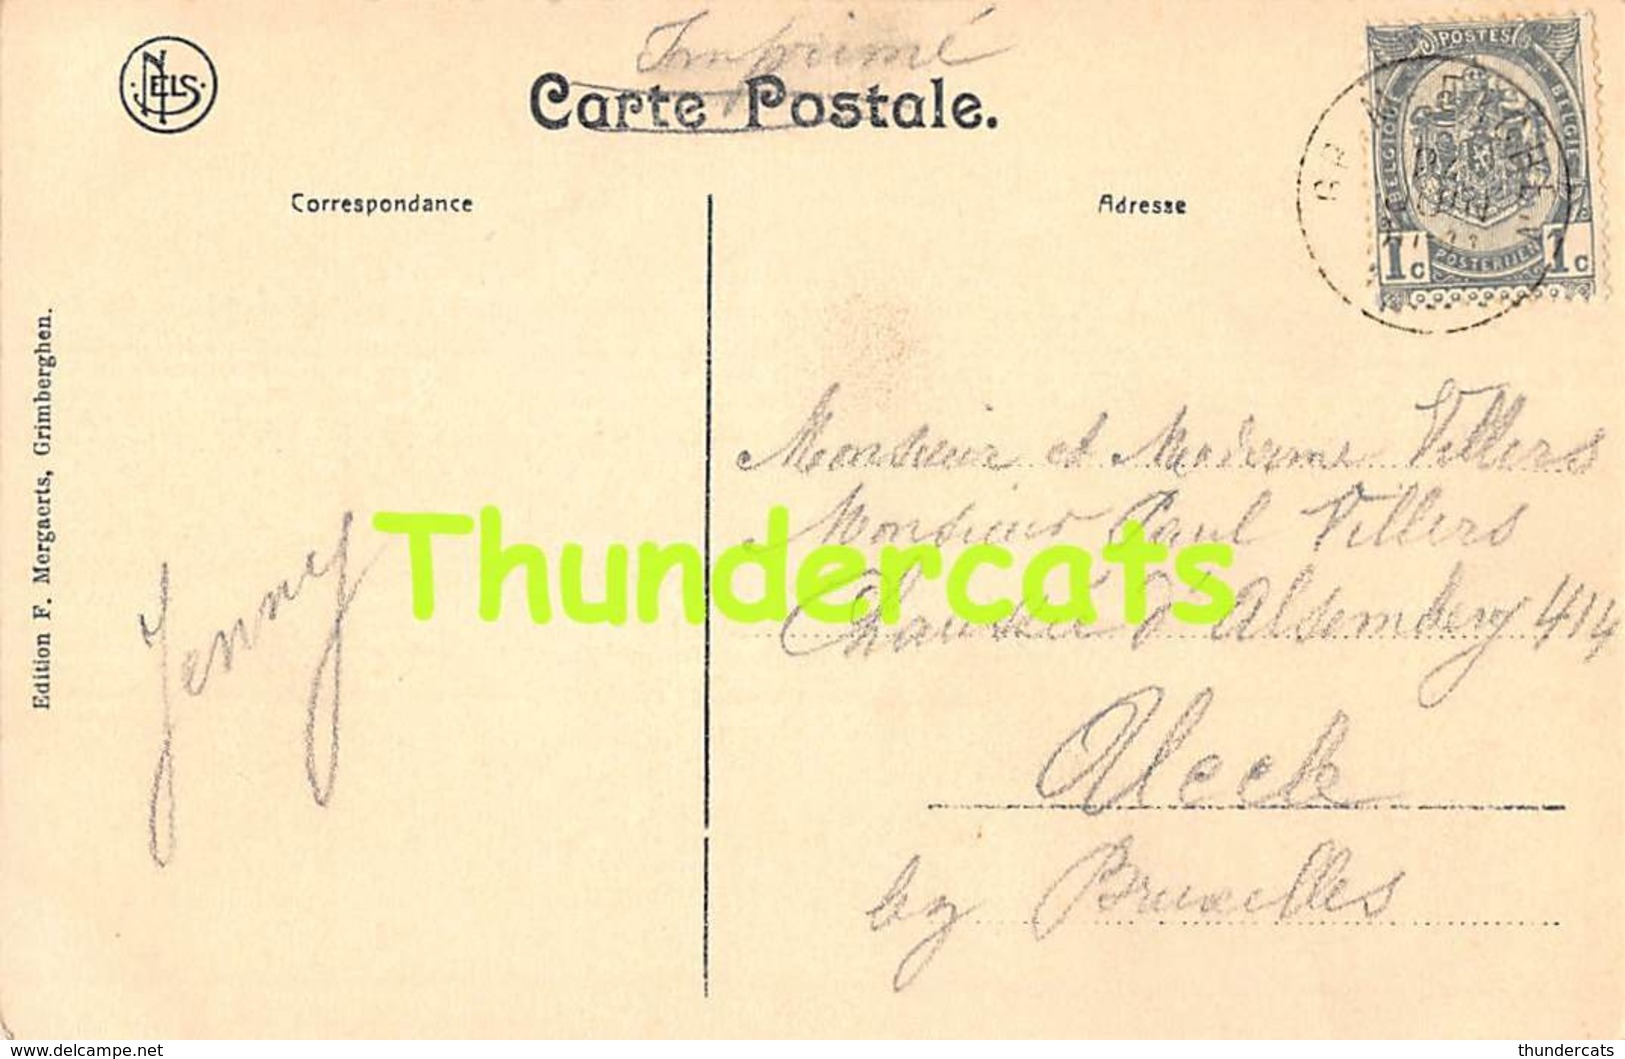 Imprimé
NELS
Carte Postale.
POSTES
BELGIQUE
BELGIË
POSTERIJEN
1c 1c
Correspondance
Adresse
Edition F. Mergaerts, Grimberghen.
Jenny
Thundercats
Monsieur et Madame Villers
Monsieur Paul Villers
Chaussée d'Alsemberg 414
Uccle
by Bruxelles
www.delcampe.net
thundercats